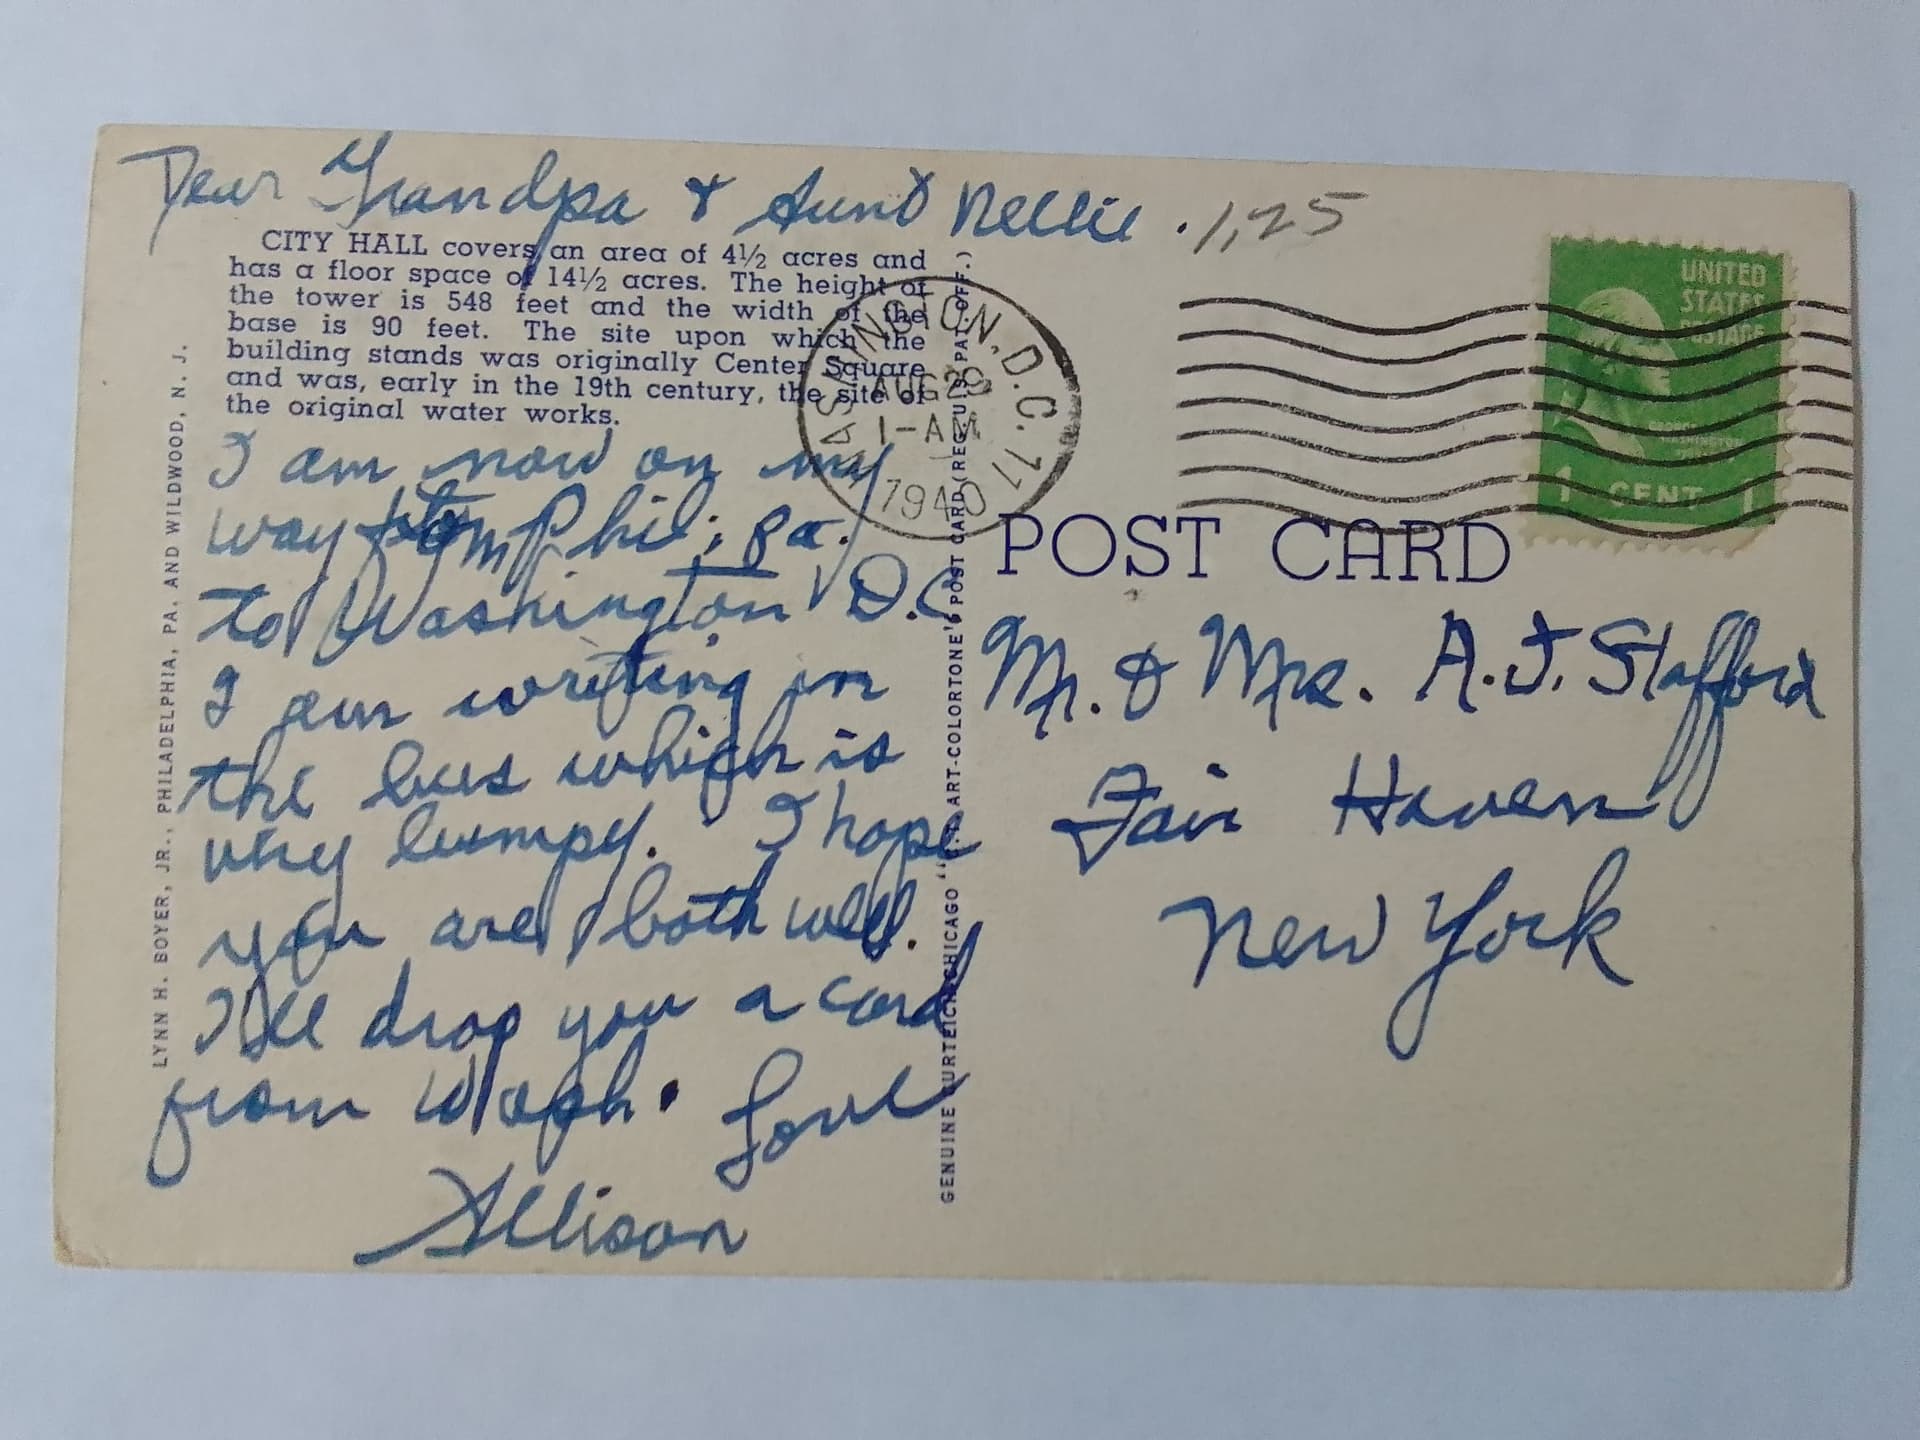 Dear Grandpa & Aunt Nellie.
1,25
CITY HALL covers an area of 4½ acres and
has a floor space of 14½ acres. The height of
the tower is 548 feet and the width of the
base is 90 feet. The site upon which the
building stands was originally Center Square
and was, early in the 19th century, the site of
the original water works.
I am now on my
way from Phil; Pa.
to Washington D.C.
I am writing in
the bus which is
very bumpy. I hope
you are both well.
I'll drop you a card
from Wash. Love
Allison
LYNN H. BOYER, JR., PHILADELPHIA, PA. AND WILDWOOD, N. J.
GENUINE CURTEICH-CHICAGO "C.T. ART-COLORTONE" POST CARD (REG. U.S. PAT. OFF.)
WASHINGTON, D.C. 11
AUG 29
1-AM
1940
UNITED
STATES
POSTAGE
GEORGE
WASHINGTON
1 CENT 1
POST CARD
Mr. & Mrs. A. J. Stafford
Fair Haven
New York